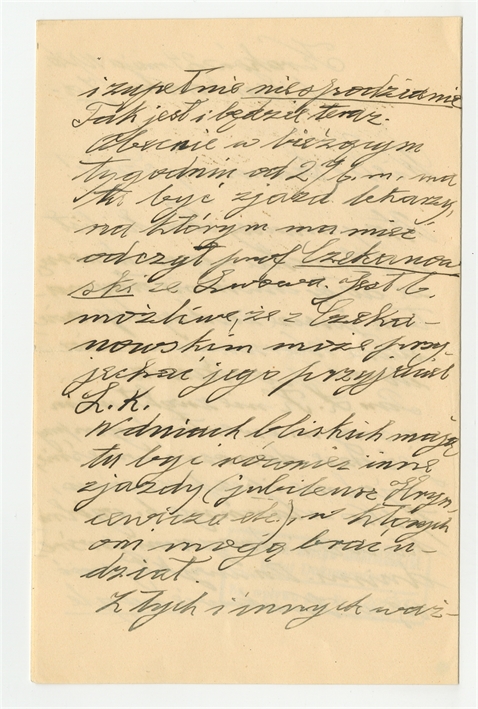 i zupełnie niespodzianie
Tak jest i będzie teraz.
Obecnie w bieżącym
tygodniu od 2 b. m. ma
tu być zjazd lekarzy,
na którym ma mieć
odczyt prof. Czekanow
ski ze Lwowa. Jest b.
możliwe, że z Czeka-
nowskim może przy-
jechać jego przyjaciel
L. K.
W dniach bliskich mają
tu być również inne
zjazdy (jubileusz Hryn
cewicza etc), w których
oni mogą brać u-
dział.
Z tych i innych waż-